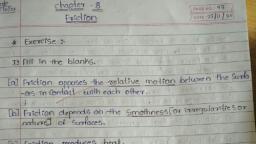 chapter - 8
PAGE NO.: 49
DATE: 23/11/20
Friction
* Exercise :-
1] Fill in the blanks.
[a] Friction opposes the relative motion between the surfa
-ces in contact with each other.
[b] Friction depends on the smothness [or irregularities or
nature] of surfaces.
Friction produces heat.